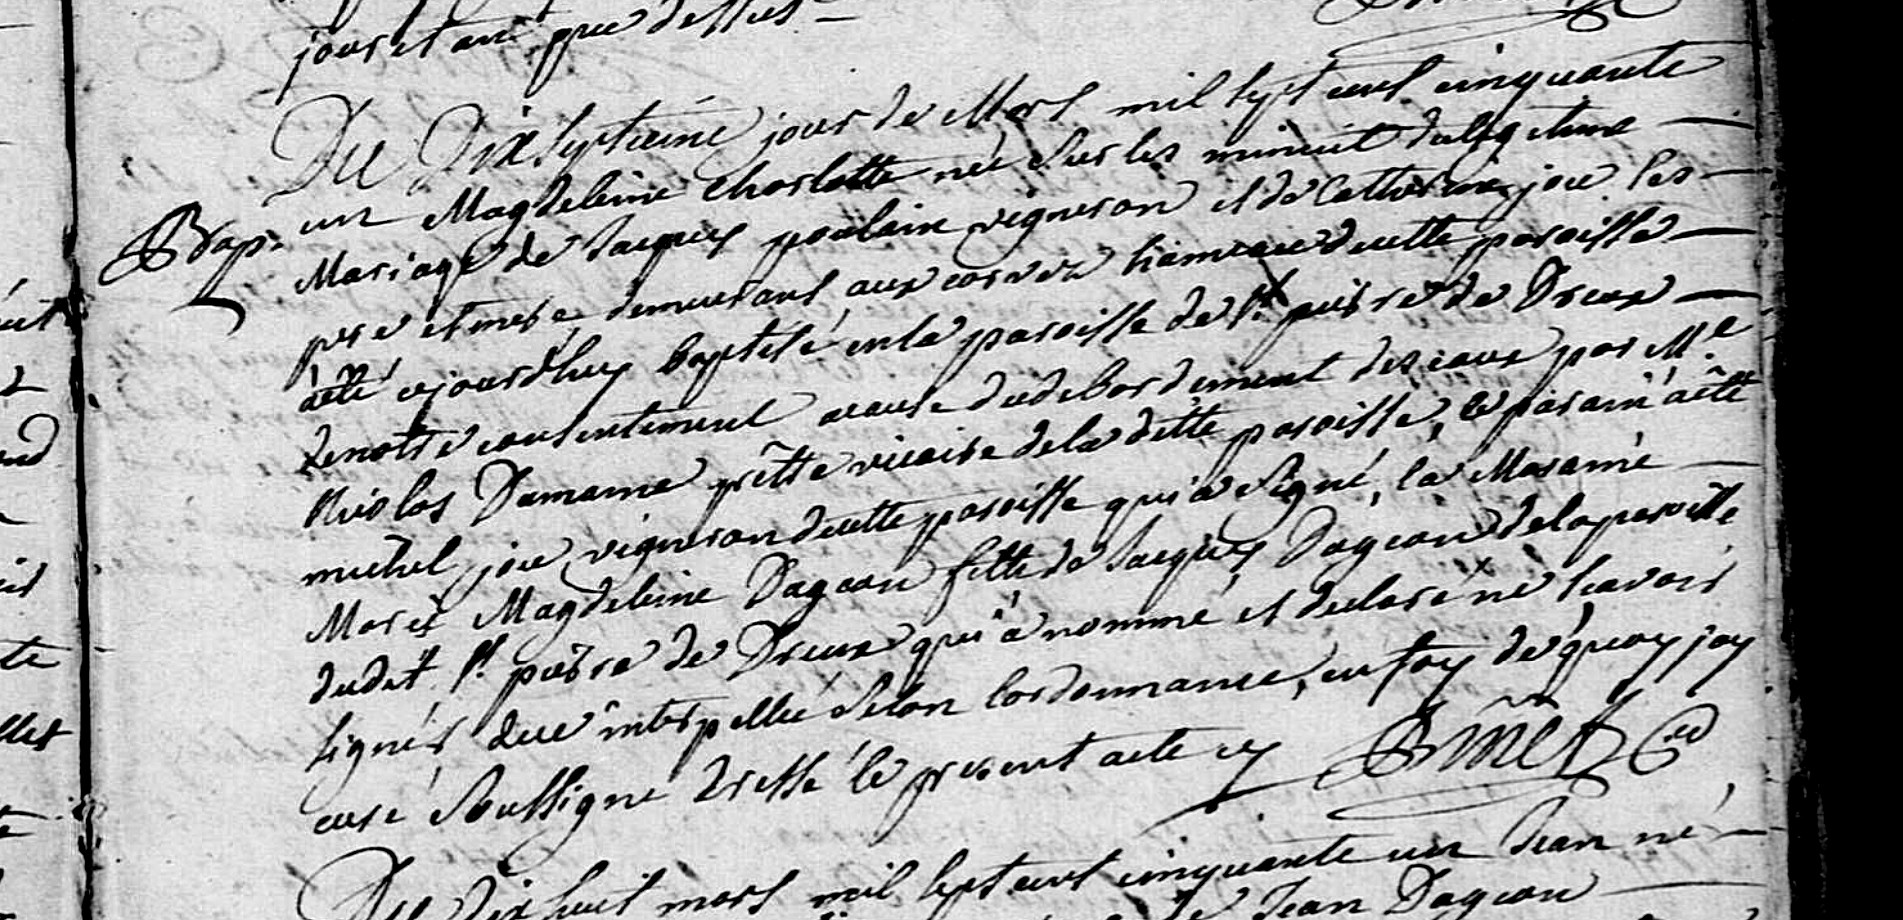 jour et an que dessus
Du Dix septieme jour de Mars mil sept cent cinquante
Bap. un Magdeleine Charlotte née sur les minuit du legitime
Mariage de Jacques poulain vigneron et de Catherine joie ses
pere et mere demeurans aux corvez hameau de cette paroisse
a été cejourd'huy baptisé en la paroisse de St. pierre de Dreux
de notre consentement a cause du debordement des eaux par Me
Nicolas Damame prêtre vicaire de la ditte paroisse, le parain a été
michel joie vigneron de cette paroisse qui a signé, la Maraine
Marie Magdeleine Dageon fille de Jacques Dageon de la paroisse
dudit St. pierre de Dreux qui a nommé et declaré ne scavoir
signer due interpellée selon l'ordonnance, en foy de quoy j'ay
curé soussigné dressé le present acte
Du Dix huit mars mil sept cent cinquante un Jean né
de Jean Dageon